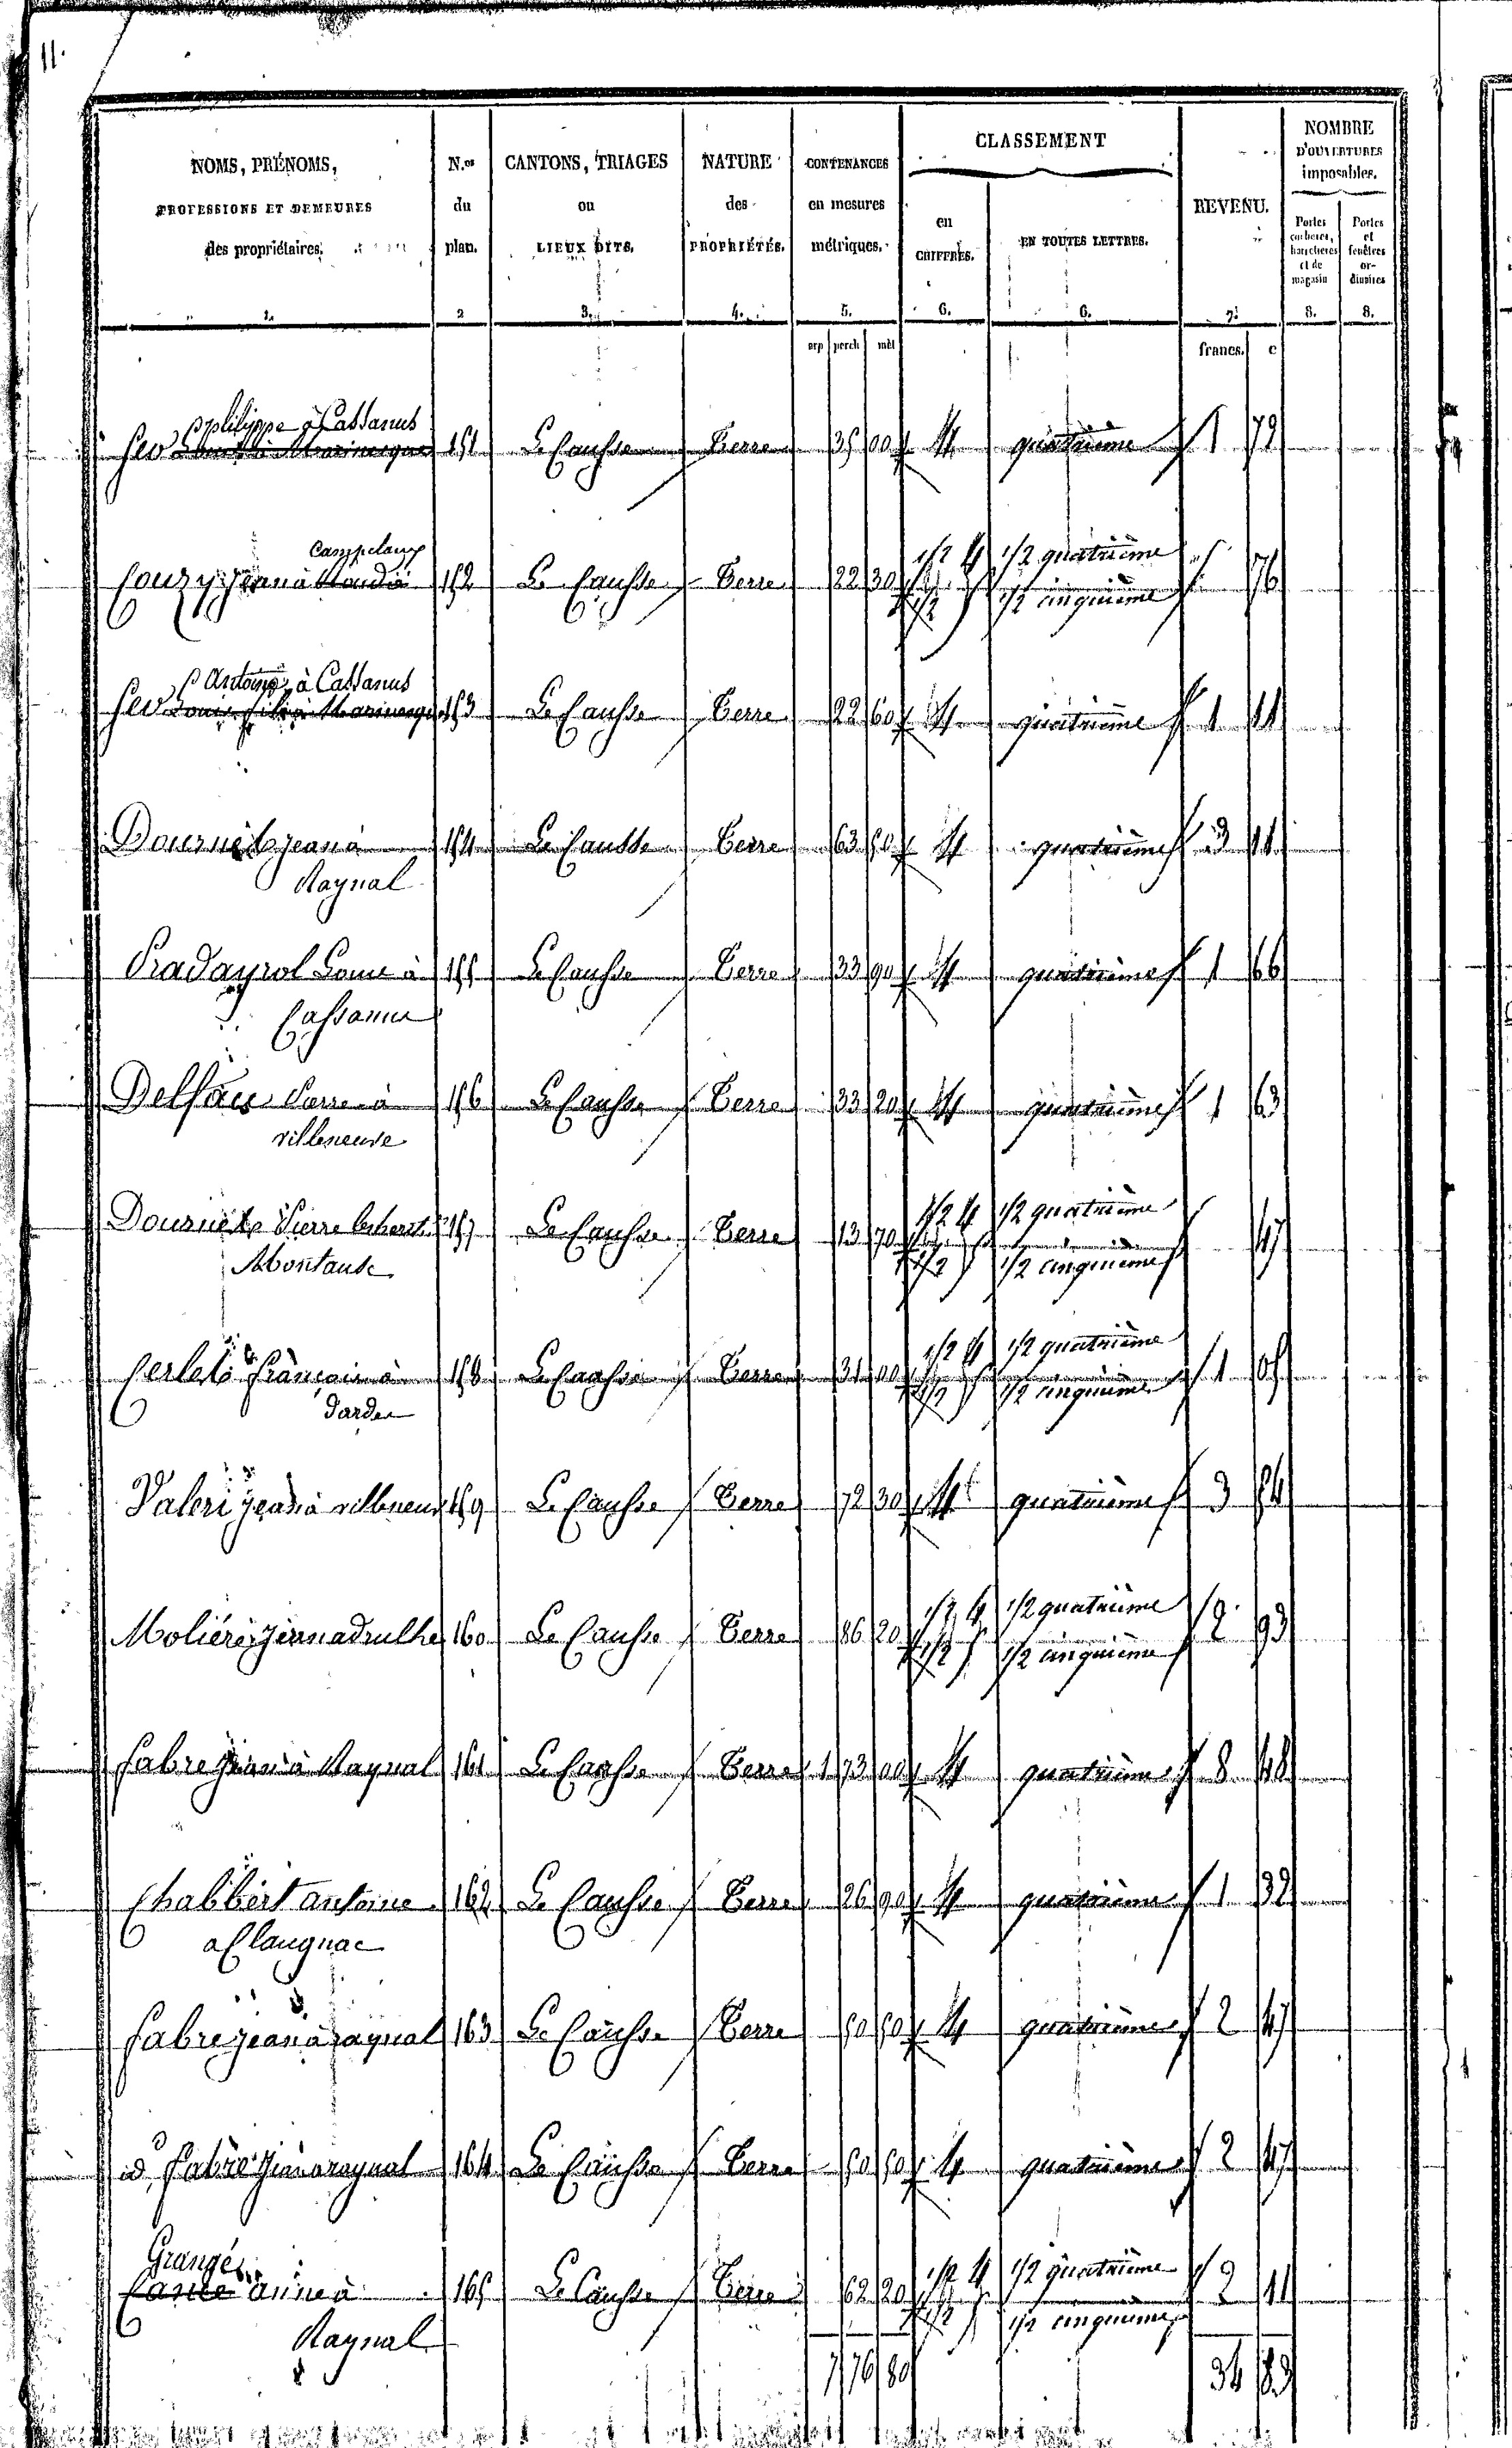 11.
NOMS, PRÉNOMS, PROFESSIONS ET DEMEURES des propriétaires. 1.
N.os du plan. 2
CANTONS, TRIAGES ou LIEUX DITS. 3.
NATURE des PROPRIÉTÉS. 4.
CONTENANCES en mesures métriques. 5.
CLASSEMENT
en CHIFFRES. 6.
EN TOUTES LETTRES. 6.
REVENU. 7.
NOMBRE D'OUVERTURES imposables.
Portes cocheres, batardieres et de magasin 8.
Portes et fenêtres ordinaires 8.
arp perch mèt francs. c
philippe à Cassanus
151 Le Causse Terre 35 00 4 quatrième 1 72
Campelaux
Couzy jean à 152 Le Causse Terre 22 30 1/2 4 1/2 quatrième 76
1/2 5 1/2 cinquième
Antoine à Cassanus
153 Le Causse Terre 22 60 4 quatrième 1 11
Dournets jean à 154 Le Causse Terre 63 50 4 quatrième 3 11
Raynal
Pradayrol Louis à 155 Le Causse Terre 33 90 4 quatrième 1 66
Cassanus
Delfau Pierre à 156 Le Causse Terre 33 20 4 quatrième 1 63
villeneuve
Dournets Pierre 157 Le Causse Terre 13 70 1/2 4 1/2 quatrième 47
Montause 1/2 5 1/2 cinquième
françois à 158 Le Causse Terre 31 00 1/2 4 1/2 quatrième 1 05
1/2 5 1/2 cinquième
Valeri jean à villeneuve 159 Le Causse Terre 72 30 4 quatrième 3 54
Moliéres 160 Le Causse Terre 86 20 1/2 4 1/2 quatrième 2 93
1/2 5 1/2 cinquième
fabre jean à Raynal 161 Le Causse Terre 1 73 00 4 quatrième 8 48
Chabbert antoine 162 Le Causse Terre 26 90 4 quatrième 1 32
a Claugnac
fabre jean à raynal 163 Le Causse Terre 50 50 4 quatrième 2 47
id fabre jean à raynal 164 Le Causse Terre 50 50 4 quatrième 2 47
Grangé
anne à 165 Le Causse Terre 62 20 1/2 4 1/2 quatrième 2 11
Raynal 1/2 5 1/2 cinquième
7 76 80 34 83